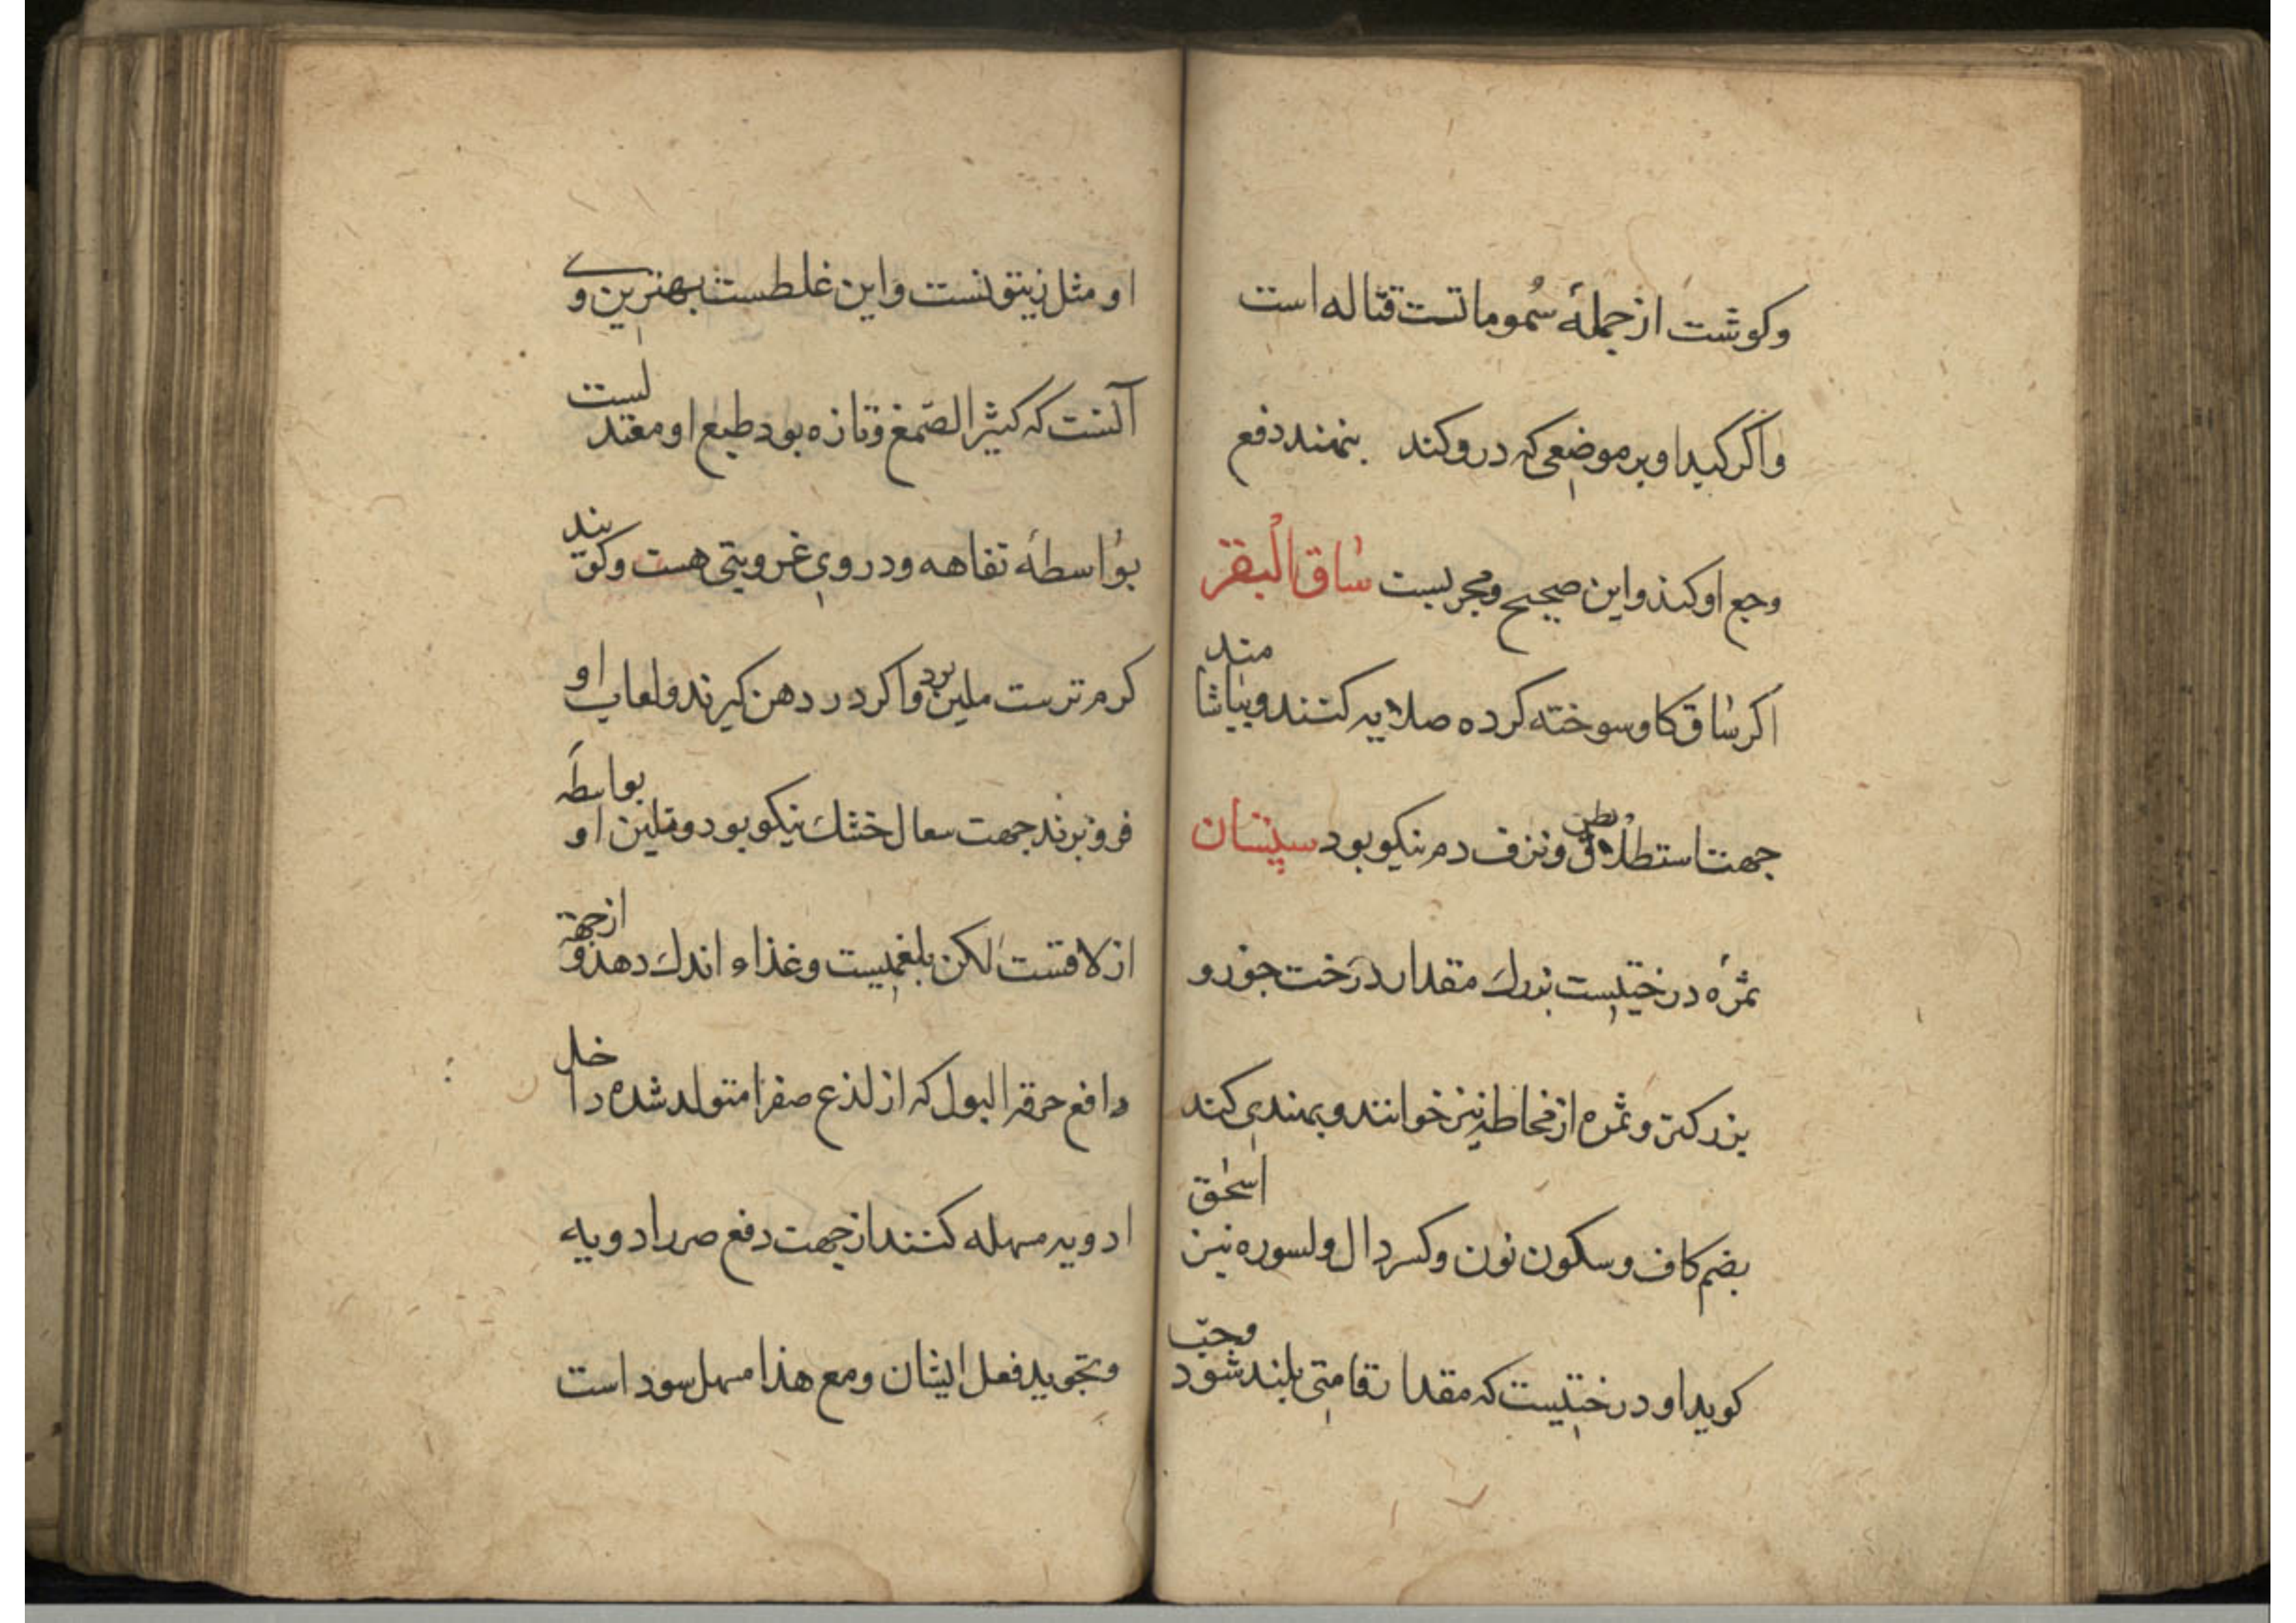 وکوشت از جملهٔ سُموماتست قتاله است
واکر کبد او بر موضعی که درو کند بنهند دفع
وجع او کند واین صحیح ومجربست ساق البقر
اکر ساق کاو سوخته کرده صلایه کنند وبیاشامند
جهت استطلاق بطن ونزف دم نیکو بود سپستان
ثمرهٔ درختیست بزرك مقدار درخت جوز و
بزرکتر وثمره از مخاطه نیز خوانند وبهندی کند
بضم کاف وسکون نون وکسر دال ولسوره نیز اسحٰق
کوید او درختیست که مقدار قامتی بلند شود وحبّ
او مثل زیتونست واین غلطست بهترین وی
آنست که کثیر الصّمغ وتازه بود طبع او معتدلست
بواسطهٔ تفاهه ودر وی غرویتی هست وکویند
کرم ترست ملین بود واکر در دهن کیرند ولعاب او
فرو برند جهت سعال خشك نیکو بود وتلیین او بواسطهٔ
ازلاقست لکن بلغمیست وغذاء اندك دهد و از جهة
دافع حرقه البول که از لذع صفرا متولد شده داخل
ادویه مسهله کنند از جهت دفع ضرر ادویه
وتجوید فعل ایشان ومع هذا مسهل سود است